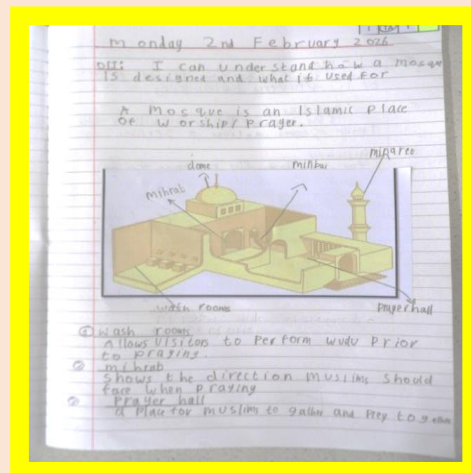 Monday 2nd February 2026
I can understand how a mosque
is designed and what it used for
A Mosque is an Islamic place
of worship/prayer.
dome
minbar
mihrab
wash rooms
prayer hall
① wash rooms
Allows visitors to perform wudu prior
to praying.
② mihrab
shows the direction muslims should
face when praying
prayer hall
a place for muslims to gather and